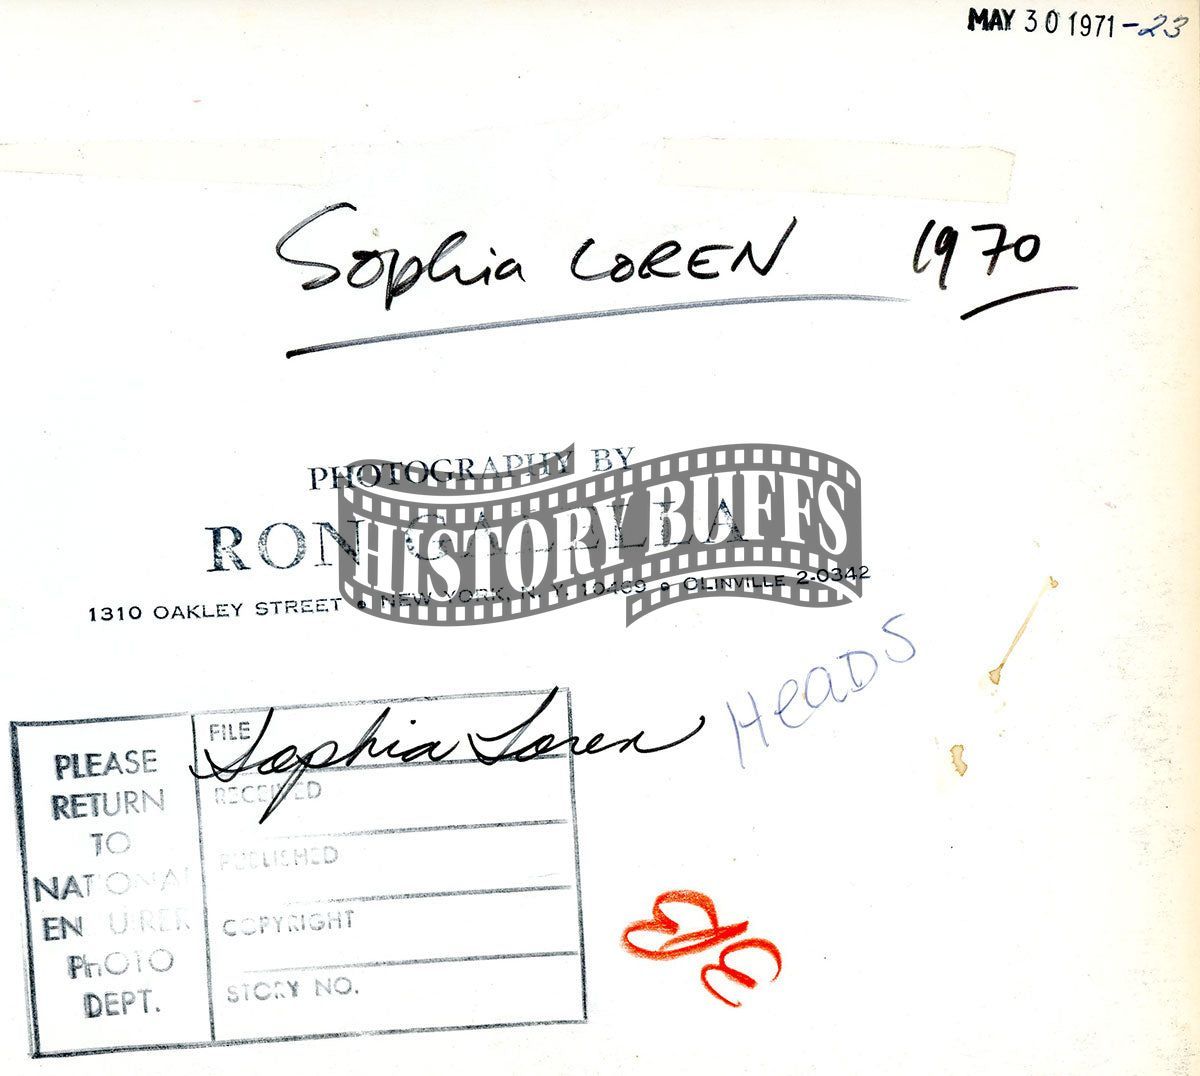 MAY 30 1971 - 23
Sophia LOREN 1970
PHOTOGRAPHY BY
RON GALELLA
HISTORY BUFFS
1310 OAKLEY STREET • NEW YORK, N. Y. 10469 • OLINVILLE 2-0342
HeaDS
PLEASE
RETURN
TO
NATIONAL
ENQUIRER
PhOTO
DEPT.
FILE Sophia Loren
RECEIVED
PUBLISHED
COPYRIGHT
STORY NO.